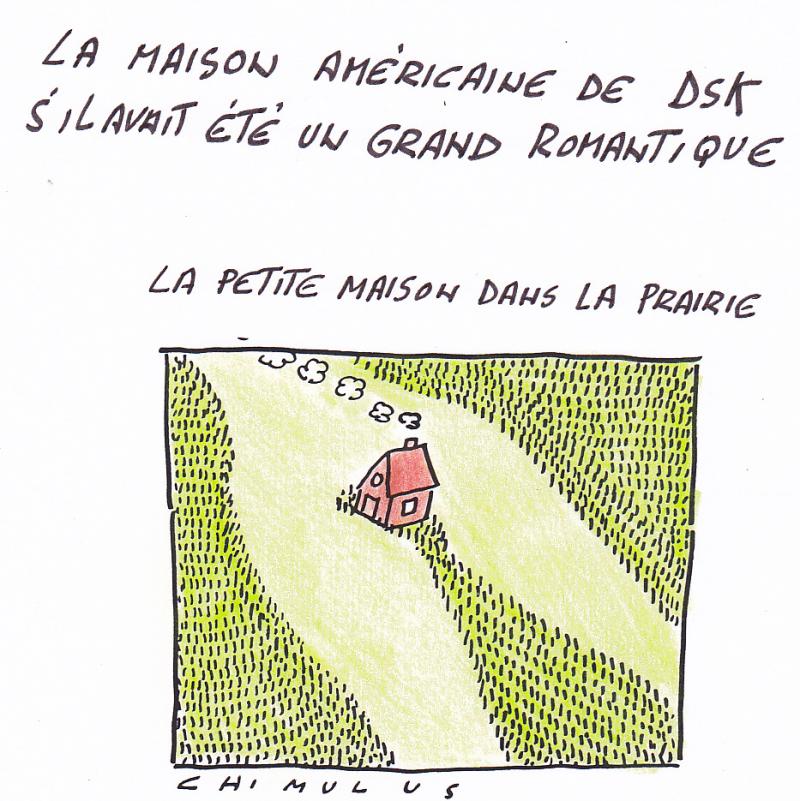 LA MAISON AMÉRICAINE DE DSK
S'IL AVAIT ÉTÉ UN GRAND ROMANTIQUE
LA PETITE MAISON DANS LA PRAIRIE
CHIMULUS